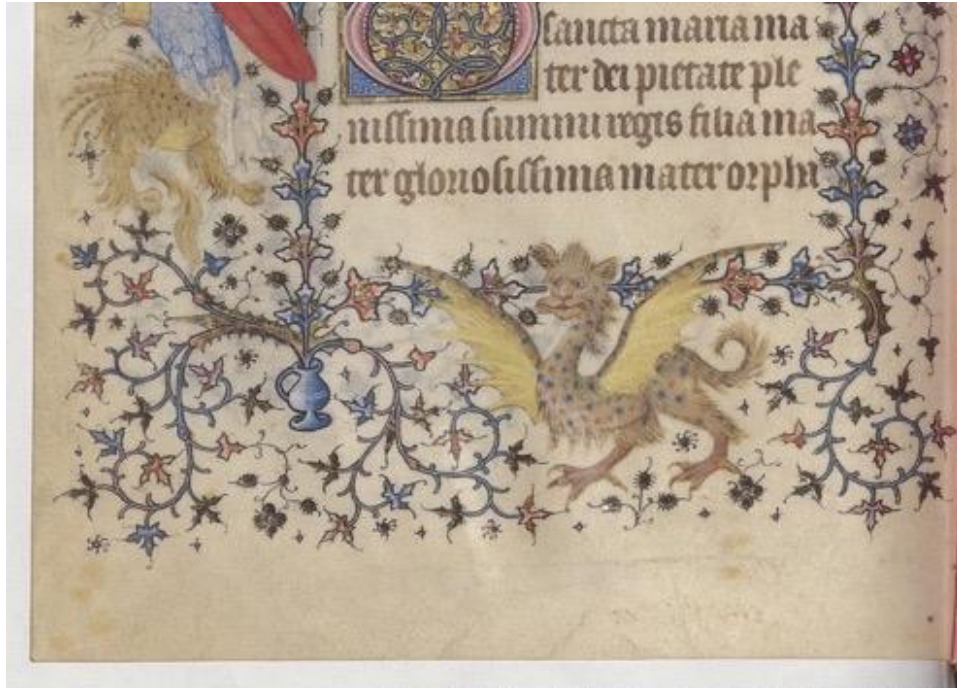 sancta maria ma
ter dei pietate ple
nissima summi regis filia ma
ter gloriosissima mater orpha